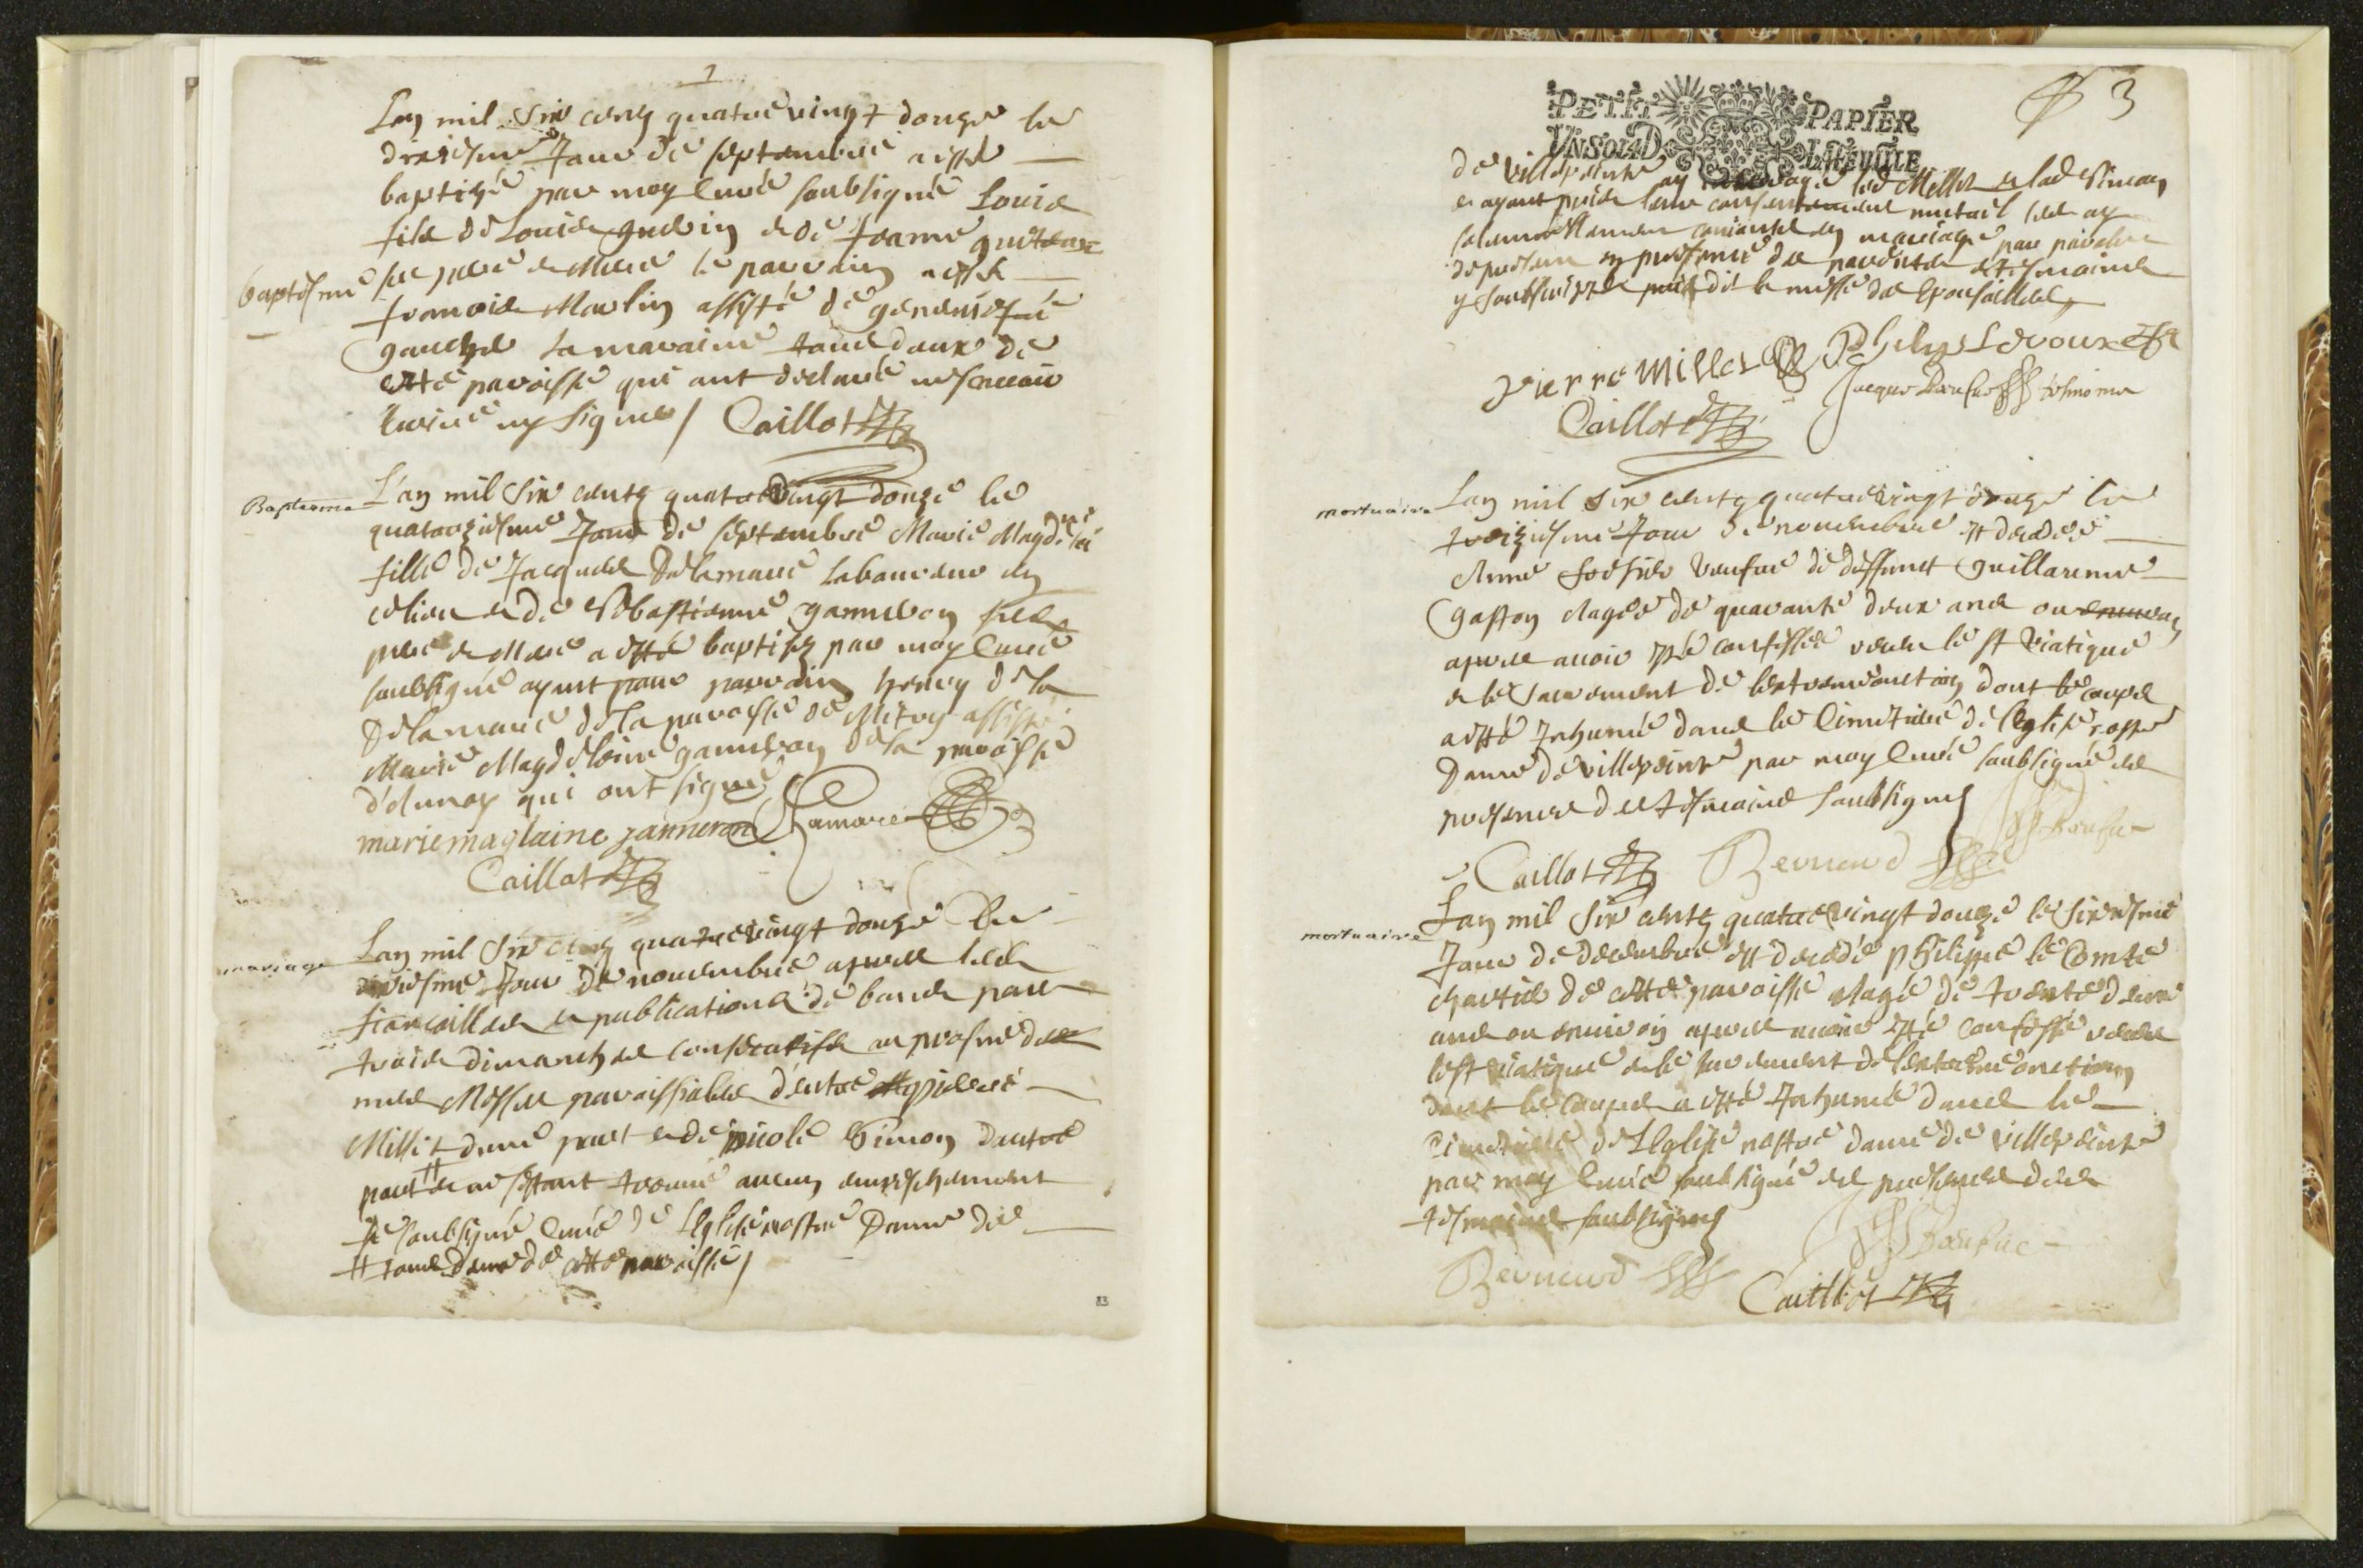 1
Lan mil six cens quatre vingt douze le
dixiesme Jour de septembre a esté
baptizé par moy Curé soubsigné Louis
fils de Louis et de Jeanne
baptesme
ses pere et Mere le parrain a esté
francois Martin assisté de geneviefve
la maraine tous deux de
cette paroisse qui ont declaré ne scavoir
escrire ny signer / Caillot
Baptesme
L'an mil six cents quatre vingt douze le
quatorziesme Jour de septembre Marie Magdelene
fille de Jacques Delamare laboureur en
ce lieu et de Sebastienne Janneron ses
pere et Mere a esté baptisée par moy Curé
soubsigné ayant pour parrain henry de la
Delamare de la paroisse de Mitry assisté
Marie Magdeleine Janneron de la paroisse
d'Aunay qui ont signé
marie maglaine janneron
Caillot
mariage
Lan mil six cens quatre vingt douze le
Jour de novembre apres les
fiancailles et publications de bancs par
trois dimanches consecutifs au prosne des
Messes paroissiales d'entre pierre
Millet d'une part et de nicole Simon dautre
part # et ne sestant trouvé aucun empeschement
Je soubsigné Curé de Leglise nostre Dame de
# tous deux de cette paroisse /
83
3
PETIT PAPIER
UN SOL 4 D LA FEUILLE
de villepeinte ay led Millet et lad Simon
et ayant pris leur consentement mutuel les ay
solemnellement conioints en mariage par parolles
de present en presence des parents et tesmoins
y soubscripts puis dit la messe des Epousailles
pierre Millet
Caillot
mortuaire
Lan mil six cents quatre vingt douze le
treiziesme Jour de novembre est decedée
Anne veufve de deffunct Guillaume
Gaston Aagée de quarante deux ans ou environ
apres avoir esté confessée receu le st Viatique
et le sacrement de lextremeonction dont le corps
a esté Inhumé dans le Cimetiere de leglise nostre
Dame de villepeinte par moy Curé soubsigné es
presences des tesmoins soubsignes
Caillot Bernard
mortuaire
Lan mil six cents quatre vingt douze le sixiesme
Jour de decembre est decedé philippe le Comte
chartier de cette paroisse Aagé de trente deux
ans ou environ apres avoir esté confessé receu
le st viatique et le sacrement de lextreme onction
dont le corps a esté Inhumé dans le
Cimetiere de Leglise nostre dame de villepeinte
par moy Curé soubsigné es presences des
tesmoins soubsignes
Bernard
Caillot